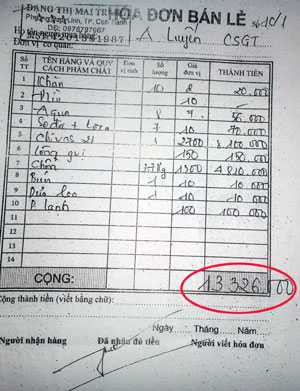 ĐẶNG THỊ MAI TRINH
HÓA ĐƠN BÁN LẺ
Số 10/1
TP. Cao Lãnh
DĐ: 0976797967
A Luyện CSGT
Đơn vị cơ quan:
SỐ TT TÊN HÀNG VÀ QUY CÁCH PHẨM CHẤT Đơn vị tính Số lượng Giá đơn vị THÀNH TIỀN
1 Khăn 10 2 20.000
2 10
3 Aqua 8 7 56.000
4 Soda + Lon 7 10 70.000
5 Chivas 21 2700 8 100 000
6 150 150 000
7 Chồn 1300 4 810 000
8 Bún 1 10 10 000
9 1 10 10 000
10 P. lạnh 100 100 000
11
12
13
14
CỘNG: 13 326 000
Cộng thành tiền (viết bằng chữ):
Ngày Tháng Năm
Người nhận hàng Đã nhận đủ tiền Người viết hóa đơn